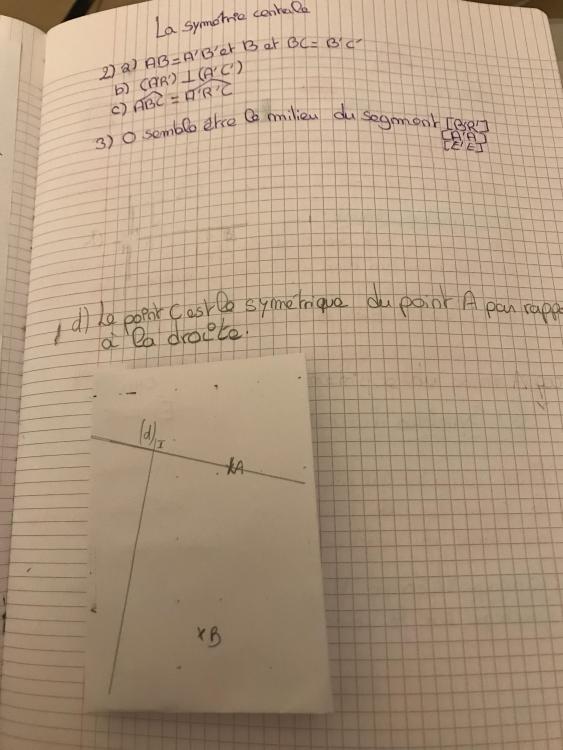 La symétrie centrale
2) a) AB = A'B' et B et BC = B'C'
b) (AR') ⊥ (A'C')
c) ABC = A'R'C
3) O semble être le milieu du segment [B'R']
[A'A]
[E'E]
d) Le point C est le symétrique du point A par rapp
à la droite.
(d)
I
A
B